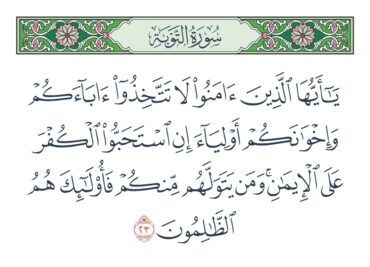 سُورَةُ التَّوْبَةِ
يَـٰٓأَيُّهَا ٱلَّذِينَ ءَامَنُوا۟ لَا تَتَّخِذُوٓا۟ ءَابَآءَكُمْ
وَإِخْوَٰنَكُمْ أَوْلِيَآءَ إِنِ ٱسْتَحَبُّوا۟ ٱلْكُفْرَ
عَلَى ٱلْإِيمَـٰنِۚ وَمَن يَتَوَلَّهُم مِّنكُمْ فَأُو۟لَـٰٓئِكَ هُمُ
ٱلظَّـٰلِمُونَ ٢٣